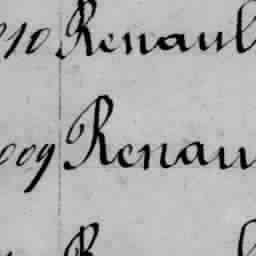 10 Renaul
009 Renau